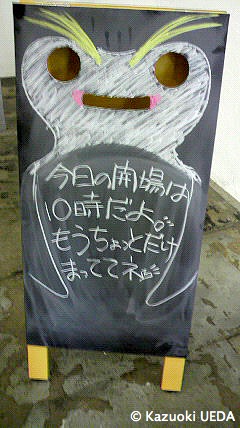 今日の開場は
10時だよ。
もうちょっとだけ
まっててネ
© Kazuoki UEDA